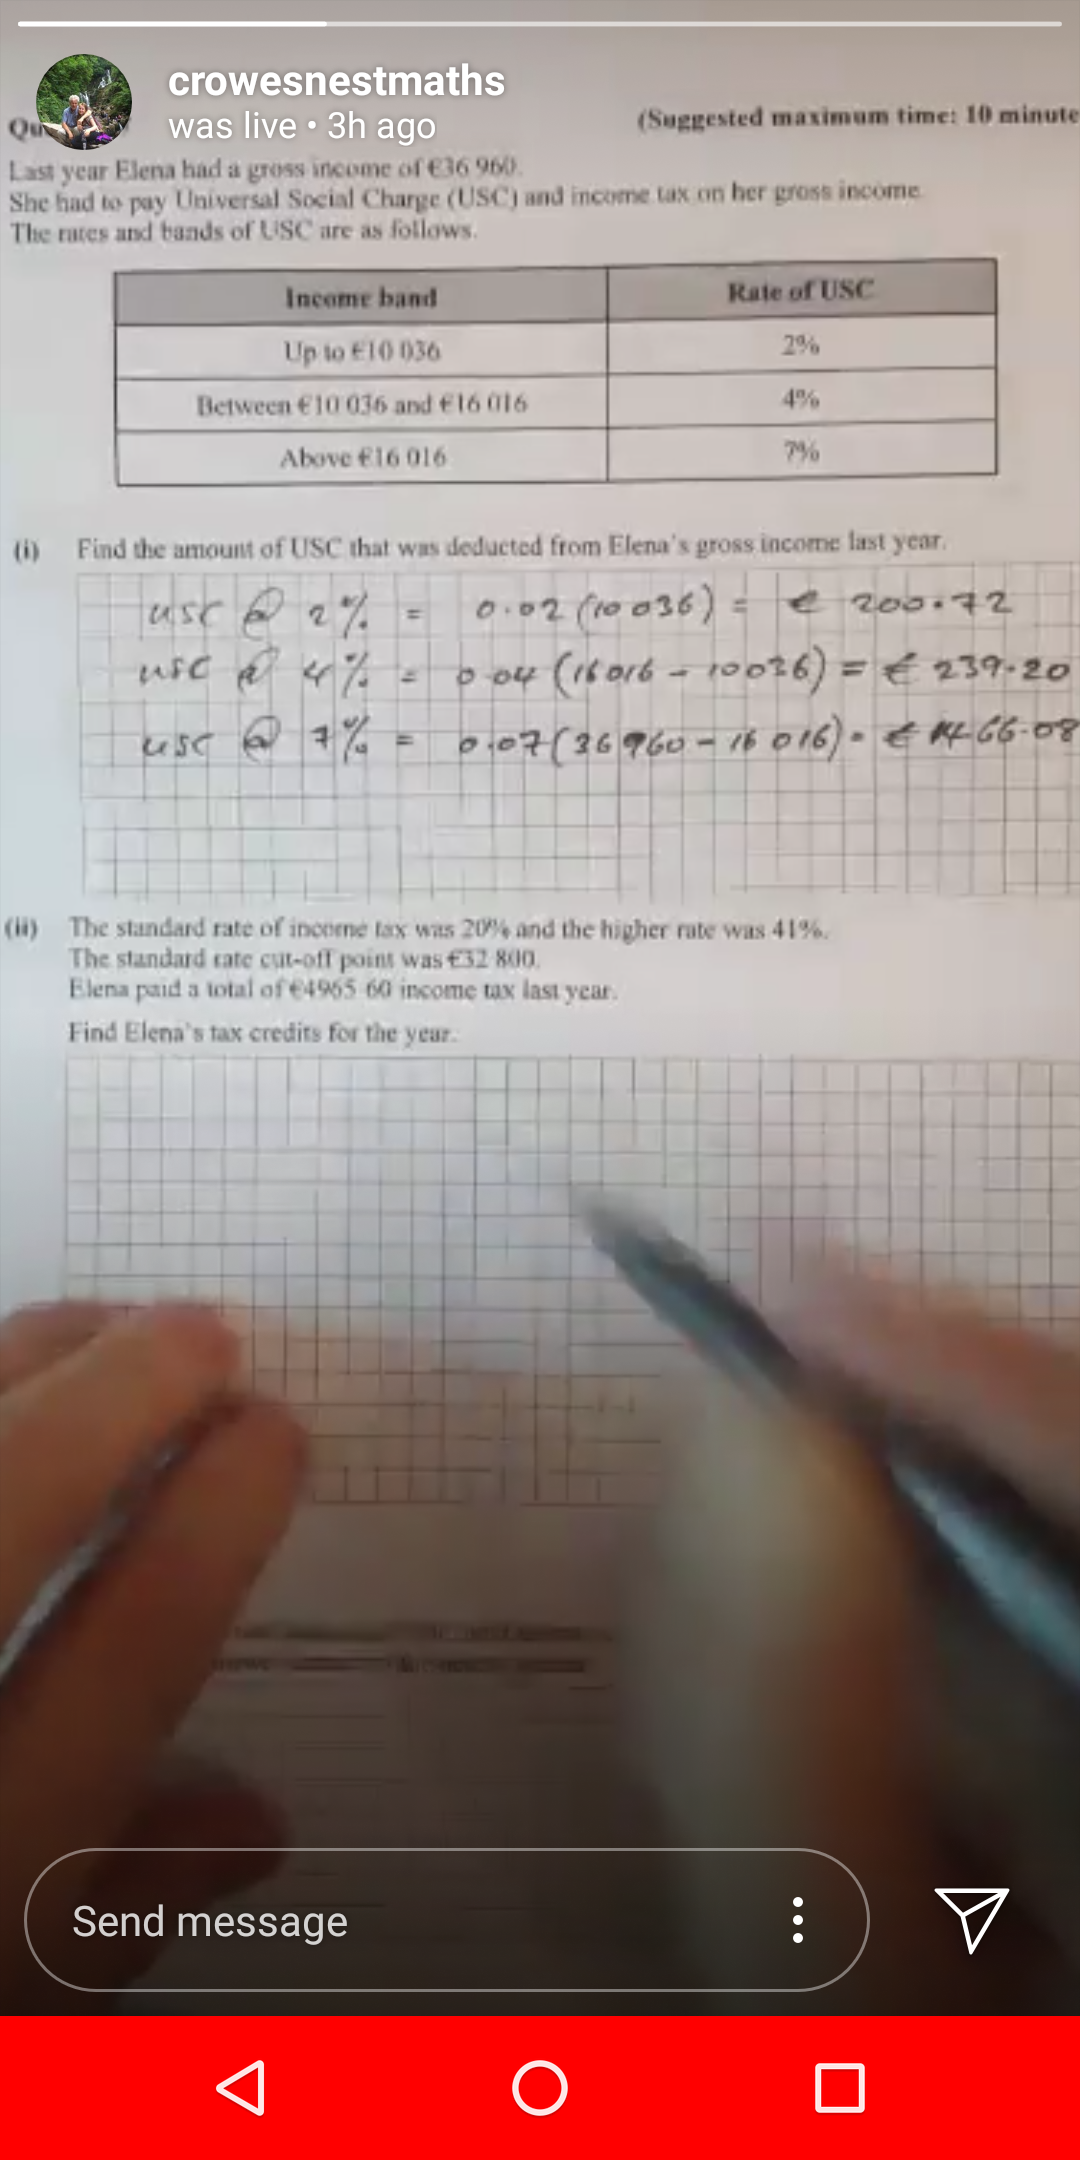 crowesnestmaths
was live • 3h ago
(Suggested maximum time: 10 minute
Last year Elena had a gross income of €36 960.
She had to pay Universal Social Charge (USC) and income tax on her gross income.
The rates and bands of USC are as follows.
Income band Rate of USC
Up to €10 036 2%
Between €10 036 and €16 016 4%
Above €16 016 7%
(i) Find the amount of USC that was deducted from Elena's gross income last year.
USC @ 2% = 0.02 (10 036) = € 200.72
USC @ 4% = 0.04 (16 016 - 10 036) = € 239.20
USC @ 7% = 0.07 (36 960 - 16 016) = € 1466.08
(ii) The standard rate of income tax was 20% and the higher rate was 41%.
The standard rate cut-off point was €32 800.
Elena paid a total of €4965 60 income tax last year.
Find Elena's tax credits for the year.
Send message